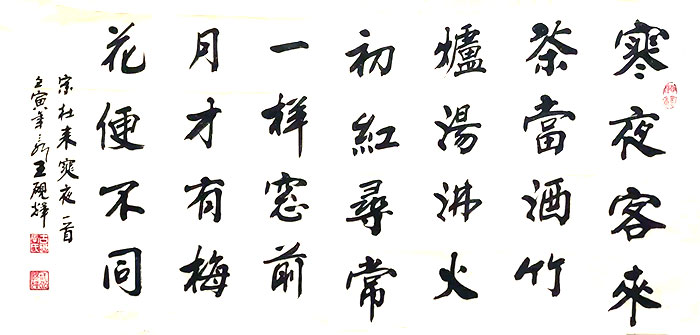 寒夜客來
茶當酒竹
爐湯沸火
初紅尋常
一樣窓前
月才有梅
花便不同
宋杜耒寒夜一首
壬寅年